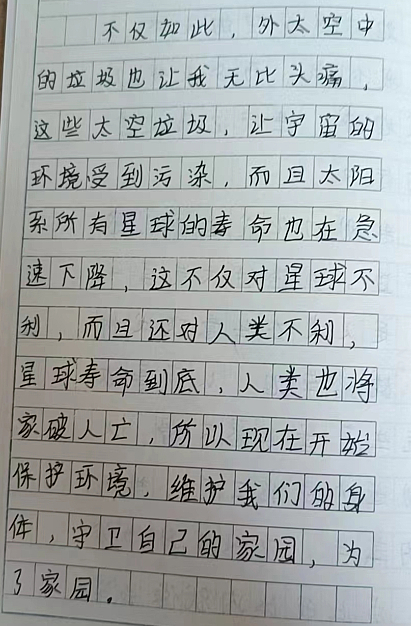 不仅如此，外太空中
的垃圾也让我无比头痛，
这些太空垃圾，让宇宙的
环境受到污染，而且太阳
系所有星球的寿命也在急
速下降，这不仅对星球不
利，而且还对人类不利，
星球寿命到底，人类也将
家破人亡，所以现在开始
保护环境，维护我们的身
体，守卫自己的家园，为
了家园。